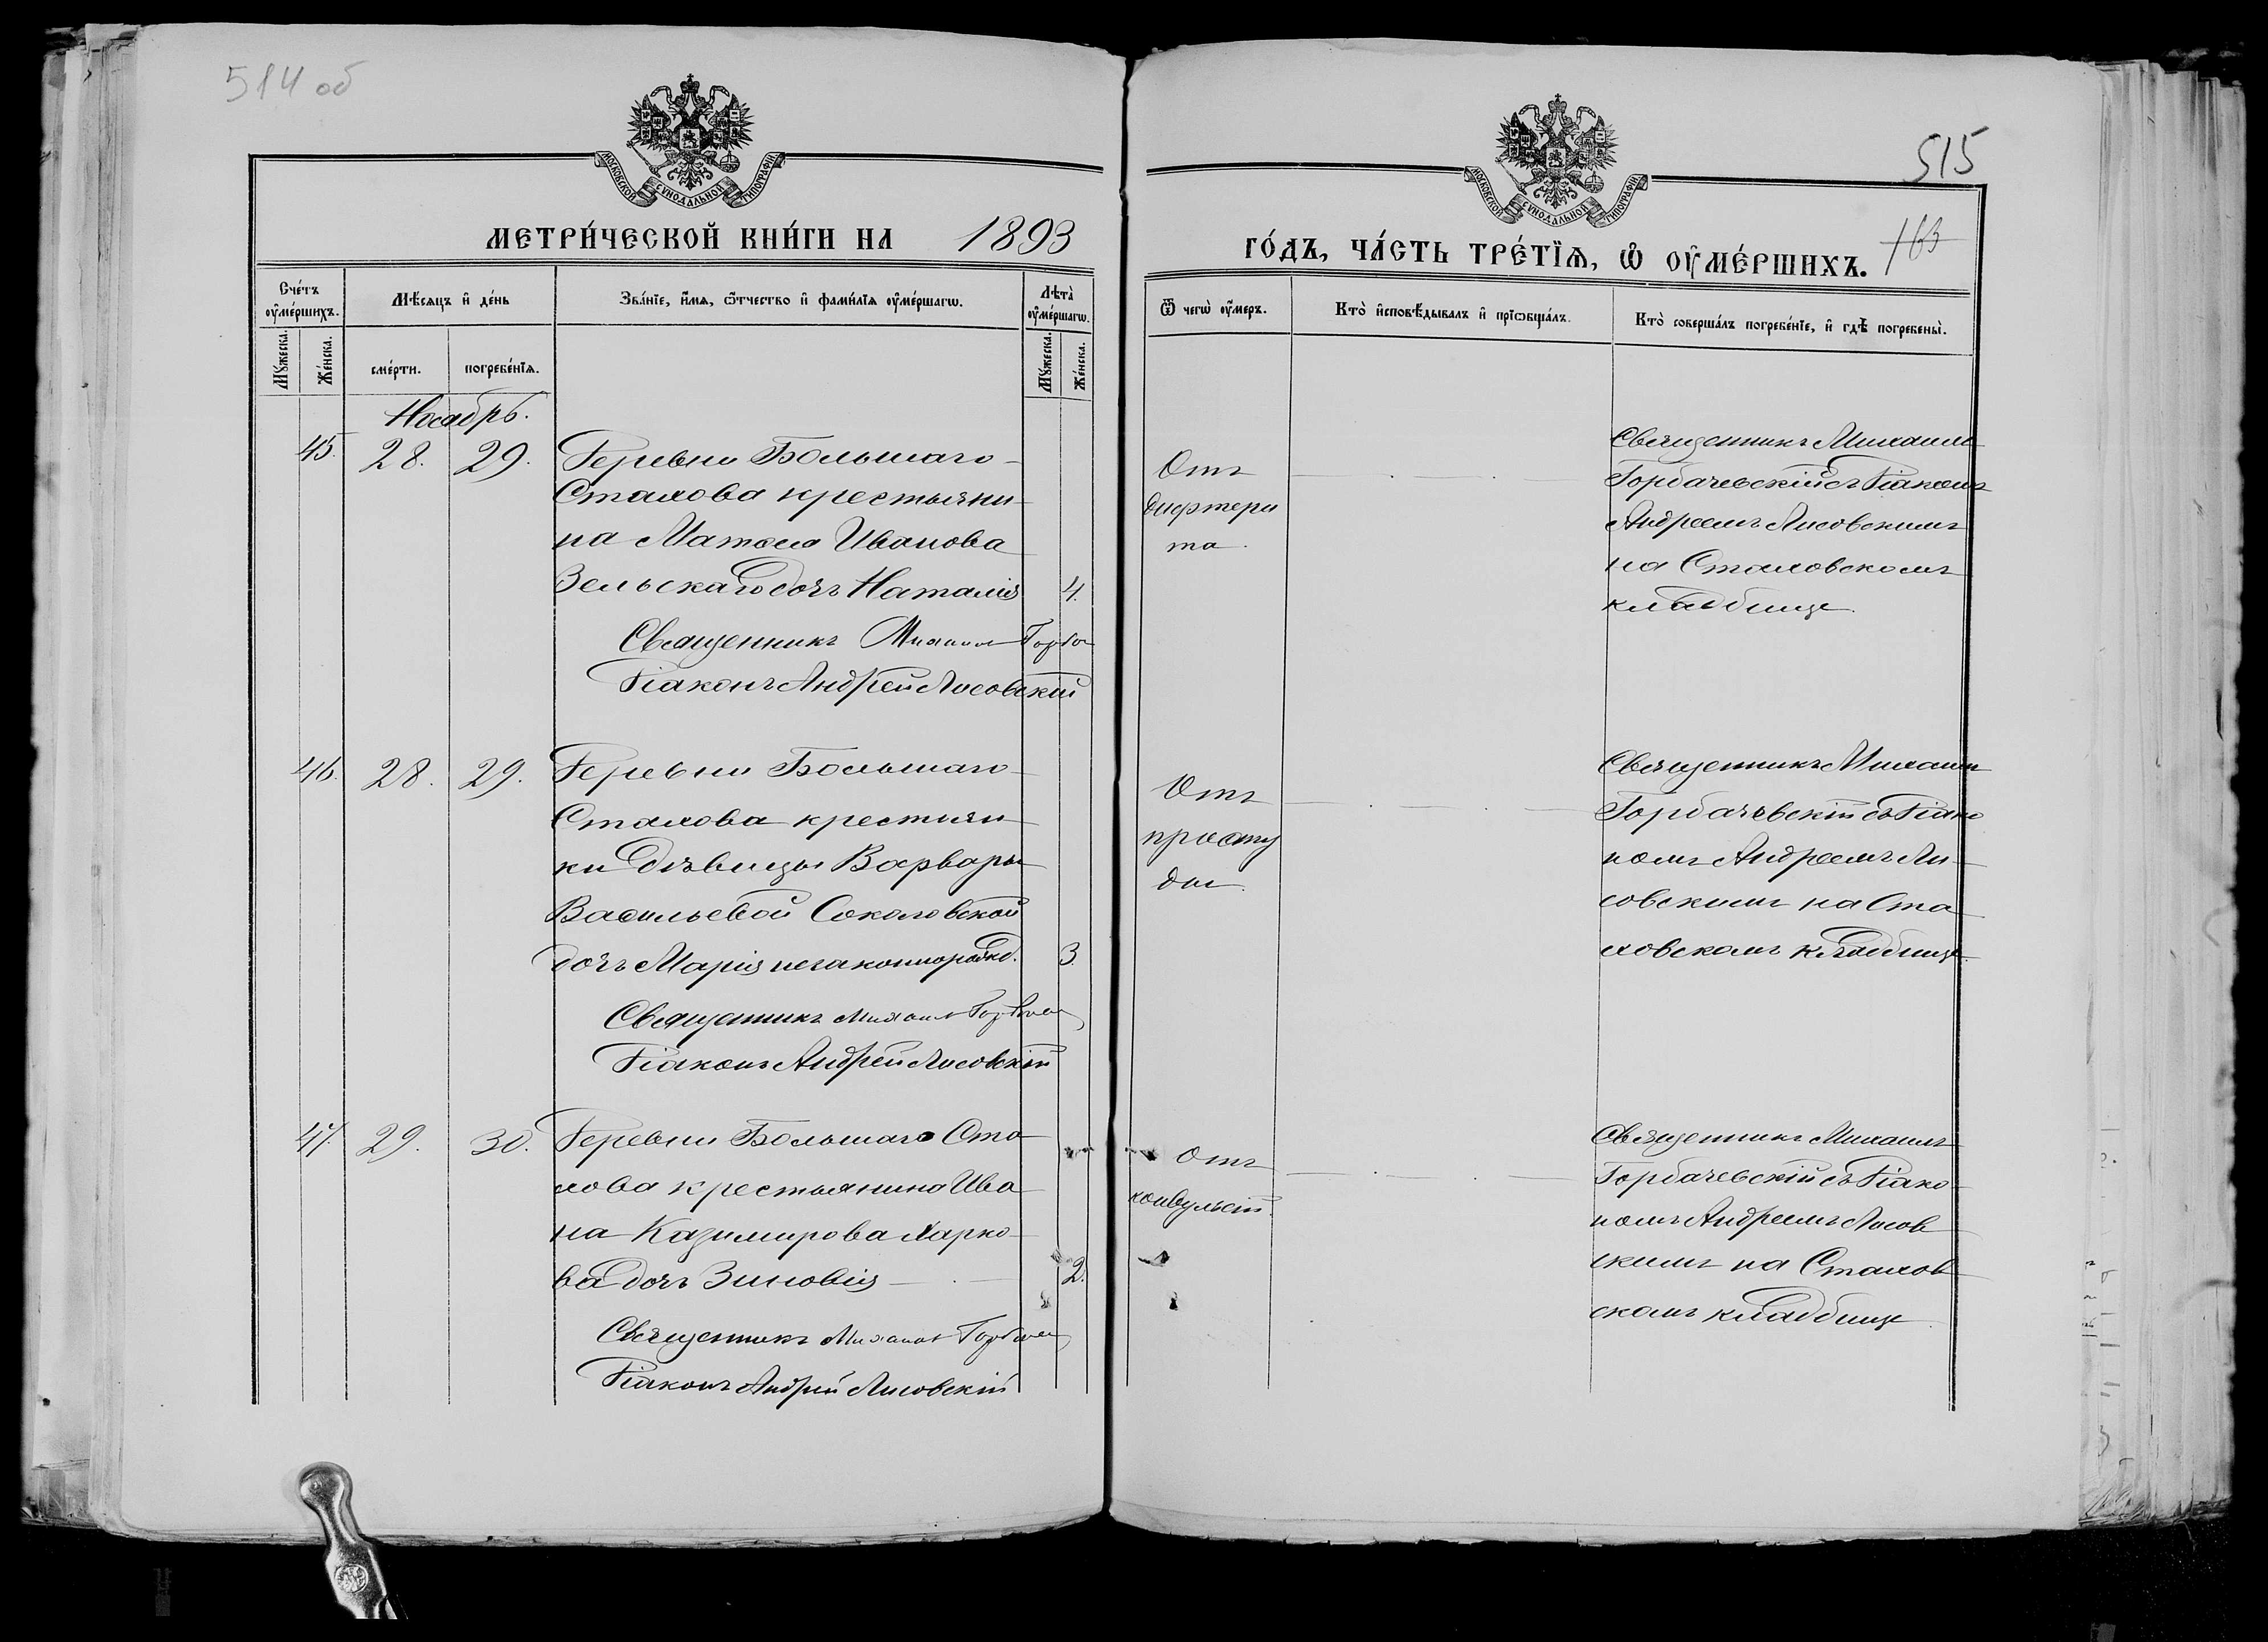 514 об
МОСКОВСКОЙ СѴНОДАЛЬНОЙ ТИПОГРАФІИ
МЕТРИ́ЧЕСКОЙ КНИ́ГИ НА 1893
Сче́тъ ᲂу҆ме́ршихъ.
Мѣ́сяцъ и҆ де́нь
Зва́нїе, и҆́мѧ, ѻ҆́тчество и҆ фами́лїѧ ᲂу҆ме́ршагѡ.
Лѣта̀ ᲂу҆ме́ршагѡ.
Мꙋ́жеска.
Же́нска.
сме́рти.
погребе́нїѧ.
Мꙋ́жеска.
Же́нска.
Ноябрь.
45. 28. 29. Деревни Большаго
Сталова крестьяни-
на Матвея Иванова
Зельскаго дочь Наталія 4.
Священникъ Михаилъ Горба
Діаконъ Андрей Лисовскій
46. 28. 29. Деревни Большаго
Сталова крестьян
ки дѣвицы Варвары
Васильевой Соколовской
дочь Марія незаконнорожд. 3.
Священникъ Михаилъ Горбачев
Діаконъ Андрей Лисовскій
47. 29. 30. Деревни Большаго Ста
лова крестьянина Ива
на Казимирова Марко
ва дочь Зиновія 2.
Священникъ Михаилъ Горбачев
Діаконъ Андрей Лисовскій
515
МОСКОВСКОЙ СѴНОДАЛЬНОЙ ТИПОГРАФІИ
ГО́ДЪ, ЧА́СТЬ ТРЕ́ТЇѦ, Ѽ ОУ҆МЕ́РШИХЪ. 163
Ѿ чегѡ̀ ᲂу҆́меръ.
Кто̀ и҆сповѣ́дывалъ и҆ прїѡбща́лъ.
Кто̀ соверша́лъ погребе́нїе, и҆ гдѣ̀ погребены̀.
Отъ
дифтери
та.
Священникъ Михаилъ
Горбачевскій съ Діакономъ
Андреемъ Лисовскимъ
на Сталовскомъ
кладбище.
Отъ
просту
ды.
Священникъ Михаилъ
Горбачевскій съ Діако
номъ Андреемъ Ли-
совскимъ на Ста
ловскомъ кладбище.
Отъ
конвульсій.
Священникъ Михаилъ
Горбачевскій съ Діако
номъ Андреемъ Лисов
скимъ на Сталов
скомъ кладбище.